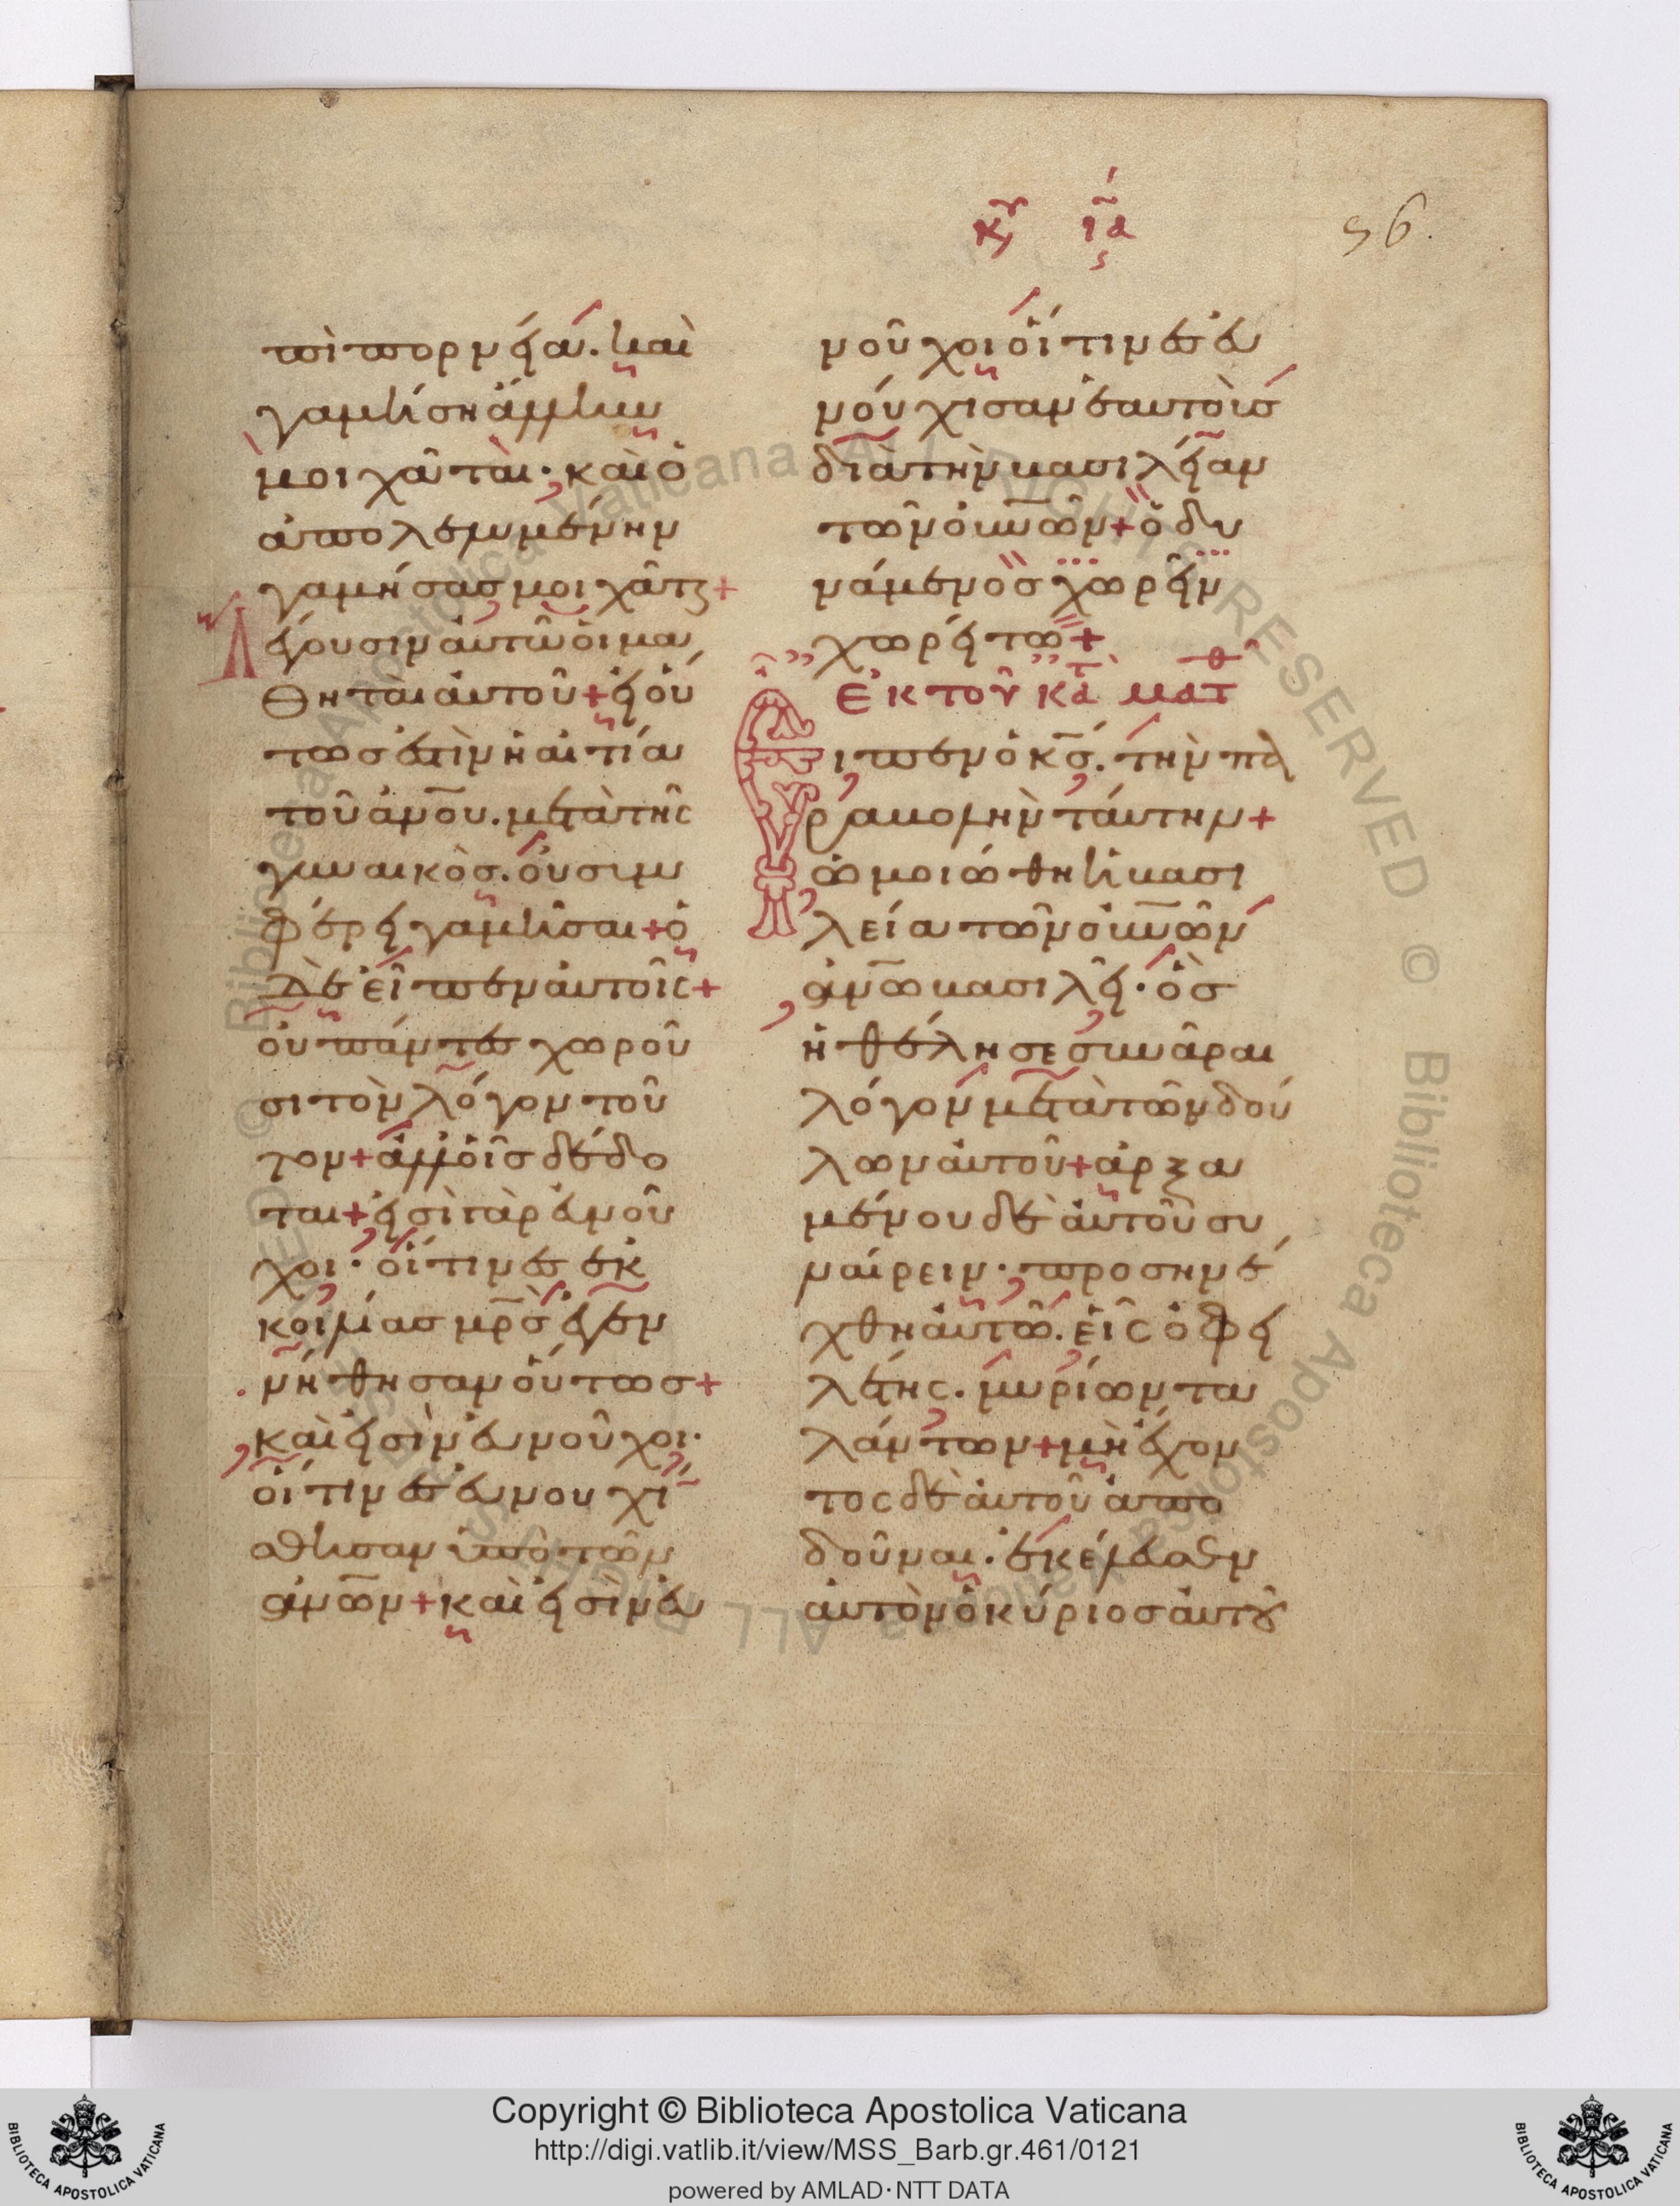 κυ ια
56.
πὶ πορνεία. καὶ
γαμήση ἄλλην
μοιχᾶται· καὶ ὁ
ἀπολελυμένην
γαμήσας μοιχᾶται+
Λέγουσιν αὐτῶ οἱ μα
θηταὶ αὐτοῦ+ εἰ οὕ
τως ἐστὶν ἡ αἰτία
τοῦ ἀνου. μετὰ τῆς
γυναικὸς. οὐ συμ
φέρει γαμῆσαι+ ὁ
δὲ εἶπεν αὐτοῖς+
οὐ πάντες χωροῦ
σι τὸν λόγον τοῦ
τον+ ἀλλ οἷς δέδο
ται+ εἰσὶ γὰρ εὐνοῦ
χοι· οἵτινες ἐκ
κοιλίας μρς ἐγεν
νήθησαν οὕτως+
καὶ εἰσὶν εὐνοῦχοι·
οἵτινες εὐνουχί
σθησαν ὑπὸ τῶν
ἀνων+ καὶ εἰσὶν εὐ
νοῦχοι οἵτινες εὐ
νούχισαν ἑαυτοὺς
διὰ τὴν βασιλείαν
τῶν οὐνῶν+ ὁ δυ
νάμενος χωρεῖν
χωρείτω+
Ἐκ τοῦ κατ ματθ
Εἶπεν ὁ κς. τὴν πα
ραβολὴν ταύτην+
ὡμοιώθη ἡ βασι
λεία τῶν οὐνῶν
ἀνω βασιλεῖ· ὃς
ἠθέλησε συνᾶραι
λόγον μετὰ τῶν δού
λων αὐτοῦ+ ἀρξα
μένου δὲ αὐτοῦ συ
ναίρειν· προσηνέ
χθη αὐτῶ. εἷς ὀφει
λέτης. μυρίων τα
λάντων+ μὴ ἔχον
τος δὲ αὐτοῦ ἀπο
δοῦναι. ἐκέλευσεν
αὐτὸν ὁ κύριος αὐτοῦ
Copyright © Biblioteca Apostolica Vaticana
http://digi.vatlib.it/view/MSS_Barb.gr.461/0121
powered by AMLAD·NTT DATA
BIBLIOTECA APOSTOLICA VATICANA
BIBLIOTECA APOSTOLICA VATICANA